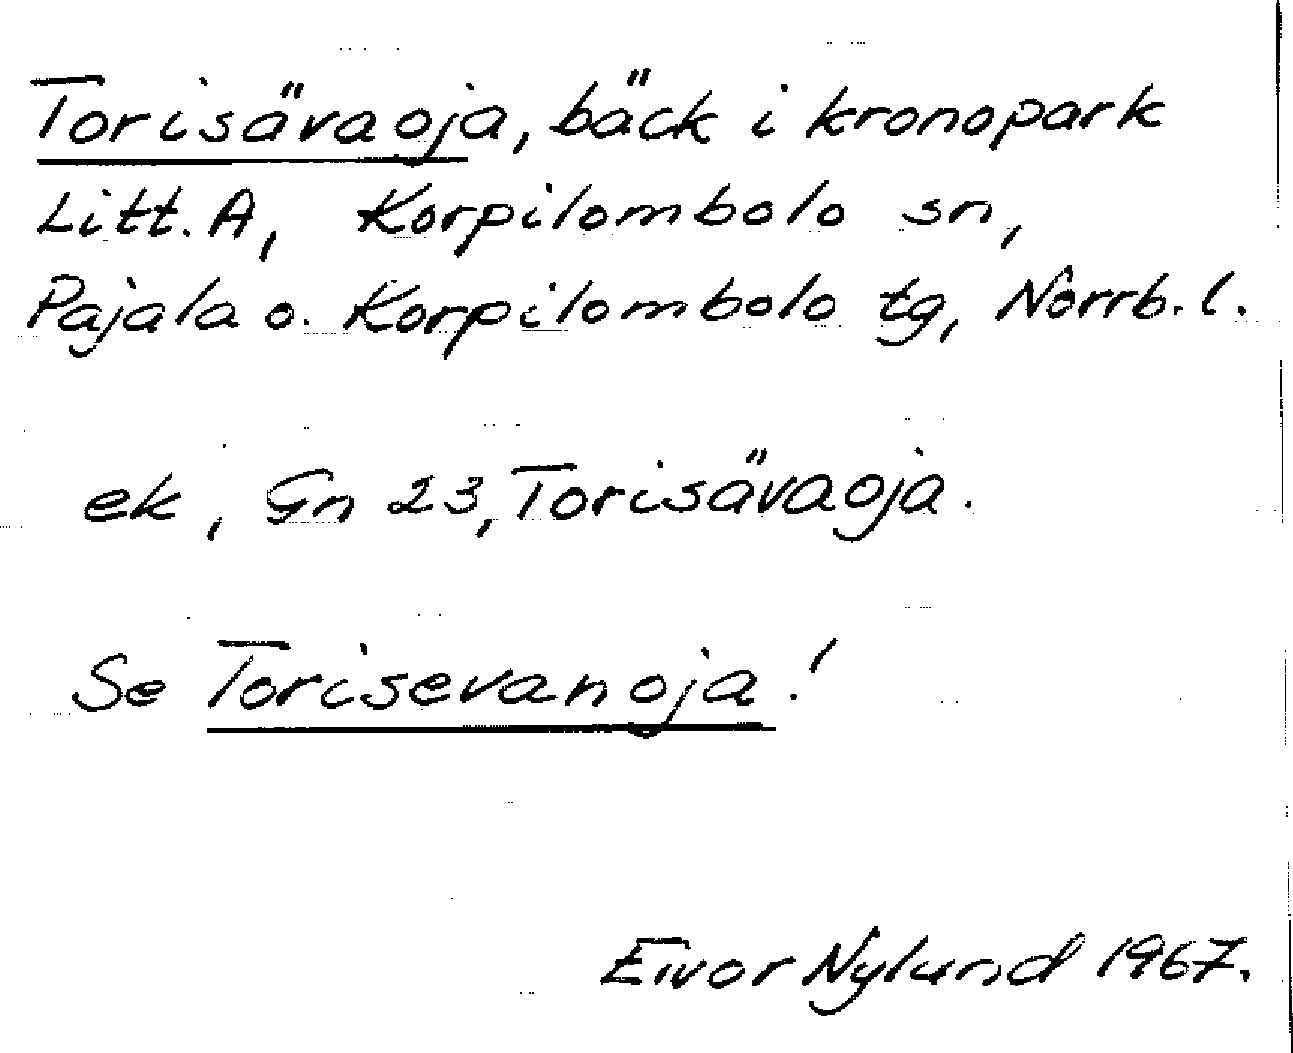 Torisävaoja, bäck i kronopark
Litt. A, Korpilombolo sn,
Pajala o. Korpilombolo tg, Norrb. l.
ek, Gn 23, Torisävaoja.
Se Torisevanoja!
Eivor Nylund 1967.